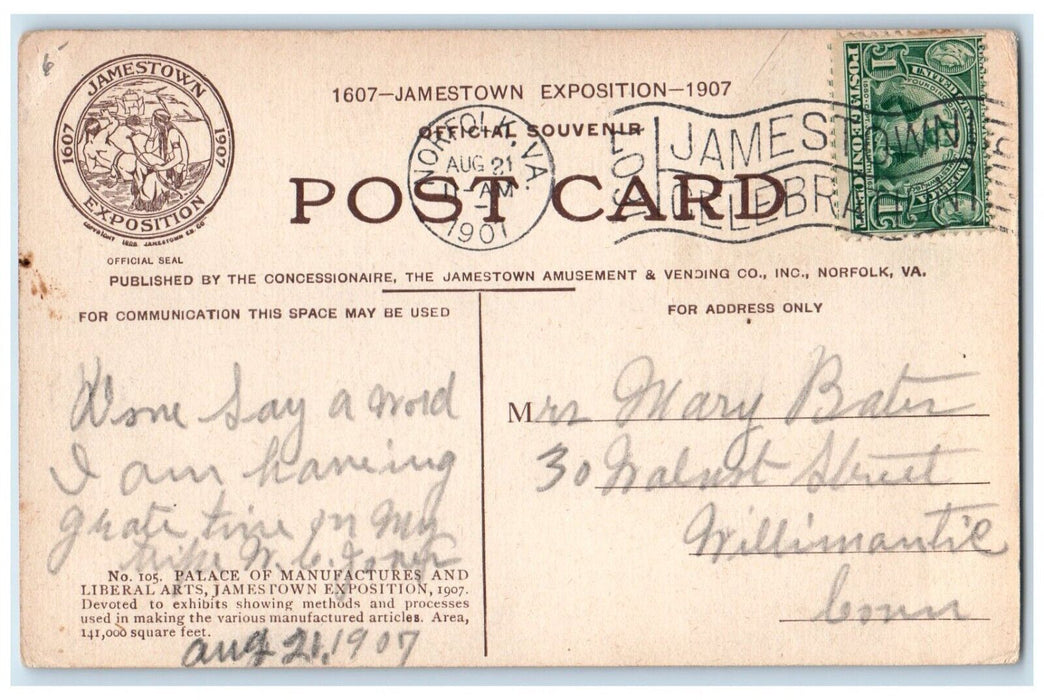 6
JAMESTOWN
1607 1907
EXPOSITION
OFFICIAL SEAL
1607—JAMESTOWN EXPOSITION—1907
OFFICIAL SOUVENIR
POST CARD
NORFOLK, VA.
AUG 21
AM
1907
JAMESTOWN
1
UNITED STATES
POSTAGE ONE CENT
PUBLISHED BY THE CONCESSIONAIRE, THE JAMESTOWN AMUSEMENT & VENDING CO., INC., NORFOLK, VA.
FOR COMMUNICATION THIS SPACE MAY BE USED
FOR ADDRESS ONLY
say a word
I am haveing
grate time on my
W. C. Jones
Mrs Mary Bates
30 Walnut Street
Willimantic
Conn
No. 105. PALACE OF MANUFACTURES AND
LIBERAL ARTS, JAMESTOWN EXPOSITION, 1907.
Devoted to exhibits showing methods and processes
used in making the various manufactured articles. Area,
141,000 square feet.
aug 21, 1907